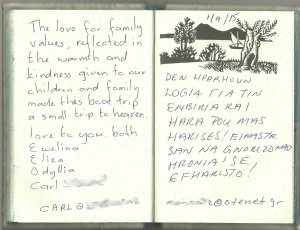 The love for family
values, reflected in
the warmth and
kindness given to our
children and family
made this boat trip
a small trip to heaven.
love to you. both
Ewelina
Eliza
Odyllia
Carl
CARL@
1/9/15
DEN HPARHOUN
LOGIA GIA TIN
EMBIRIA KAI
HARA POU MAS
HARISES! EIMASTE
SAN NA GNORIZOMAS
HRONIA! SE
EFHARISTO!
@otenet.gr